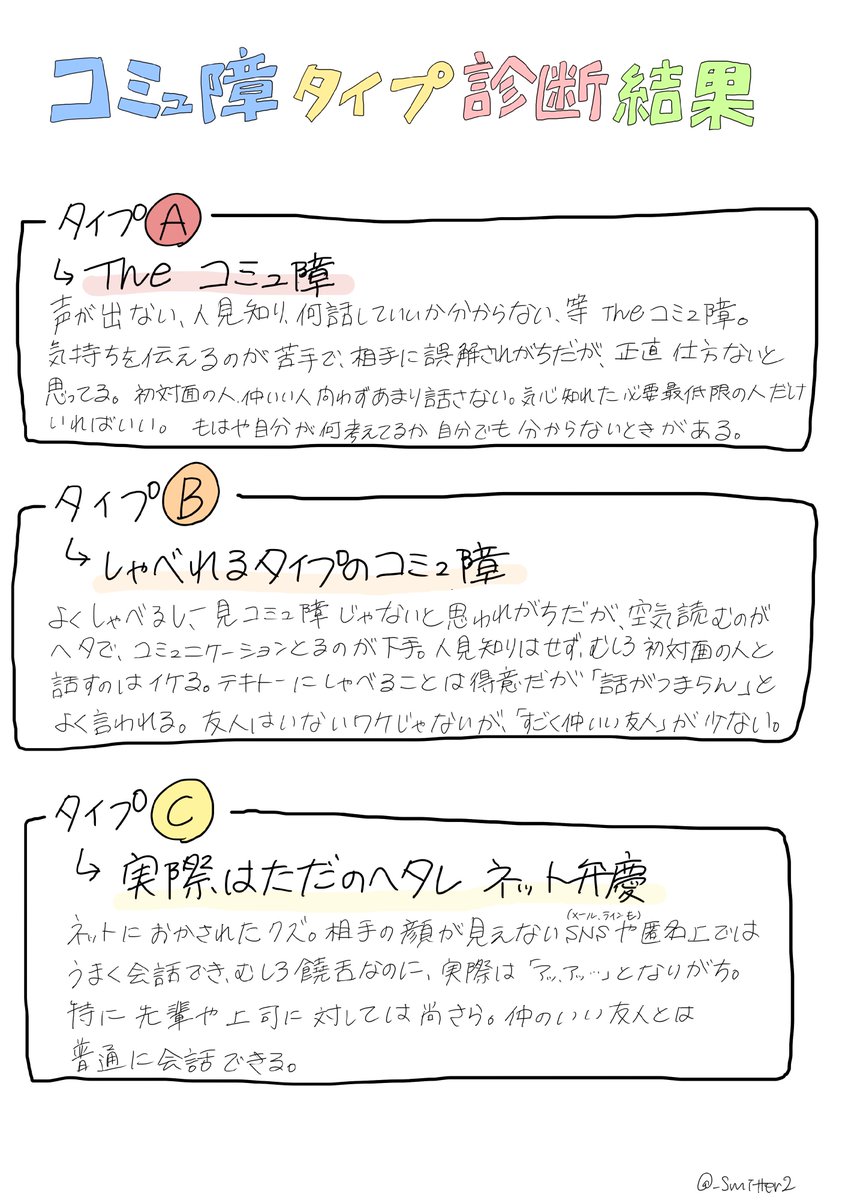 コミュ障タイプ診断結果
タイプA
↳ The コミュ障
声が出ない、人見知り、何話していいか分からない、等 Theコミュ障。
気持ちを伝えるのが苦手で、相手に誤解されがちだが、正直仕方ないと
思ってる。初対面の人、仲いい人問わずあまり話さない。気心知れた必要最低限の人だけ
いればいい。もはや自分が何考えてるか自分でも分からないときがある。
タイプB
↳ しゃべれるタイプのコミュ障
よくしゃべるし、一見コミュ障じゃないと思われがちだが、空気読むのが
ヘタで、コミュニケーションとるのが下手。人見知りはせず、むしろ初対面の人と
話すのはイケる。テキトーにしゃべることは得意だが「話がつまらん」と
よく言われる。友人はいないワケじゃないが、「すごく仲いい友人」が少ない。
タイプC
↳ 実際はただのヘタレ ネット弁慶
ネットにおかされたクズ。相手の顔が見えないSNS(メール、ラインも)や匿名上では
うまく会話でき、むしろ饒舌なのに、実際は「アッ、アッ…」となりがち。
特に先輩や上司に対しては尚さら。仲のいい友人とは
普通に会話できる。
@_Smitter2